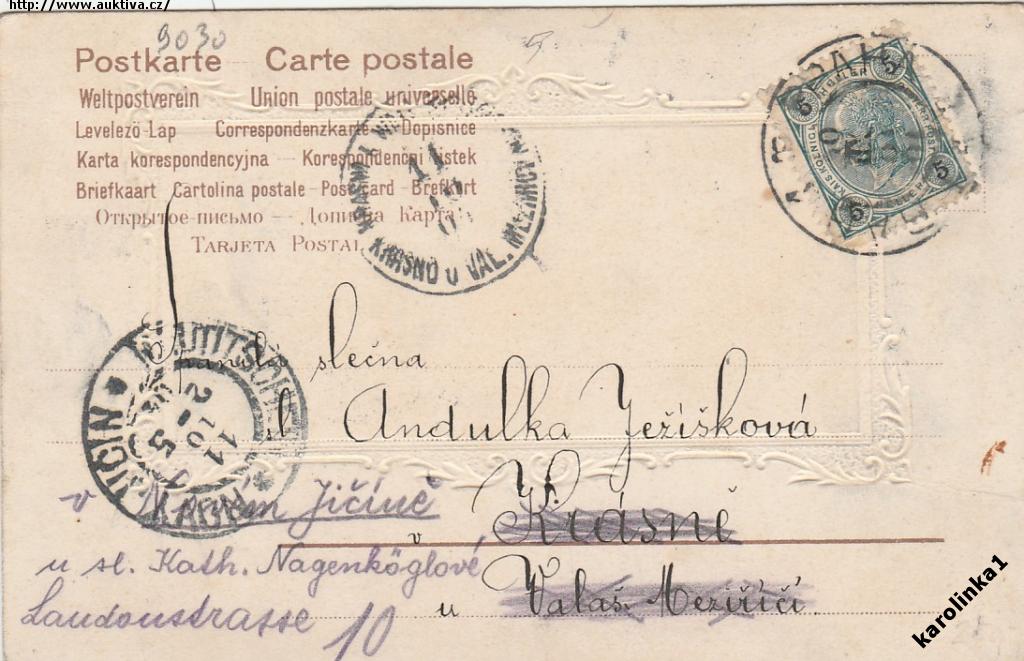 http://www.auktiva.cz/
9030
Postkarte — Carte postale
Weltpostverein Union postale universelle
Levelező-Lap Correspondenzkarte Dopisnice
Karta korespondencyjna — Korespondenční lístek
Briefkaart Cartolina postale - Post card - Brefkort
Открытое письмо — Дописна Карта
Tarjeta Postal
KRASNO U VAL. MEZIŘIČÍ
11
5 5
5 5
slečna
sl. Andulka Ježíšková
v Krásně
u Valaš. Meziříčí.
NEUTITSCHEIN
NOVÝ JIČÍN
v Novém Jičíně
u sl. Kath. Nagenköglové
Laudonstrasse 10
karolinka1